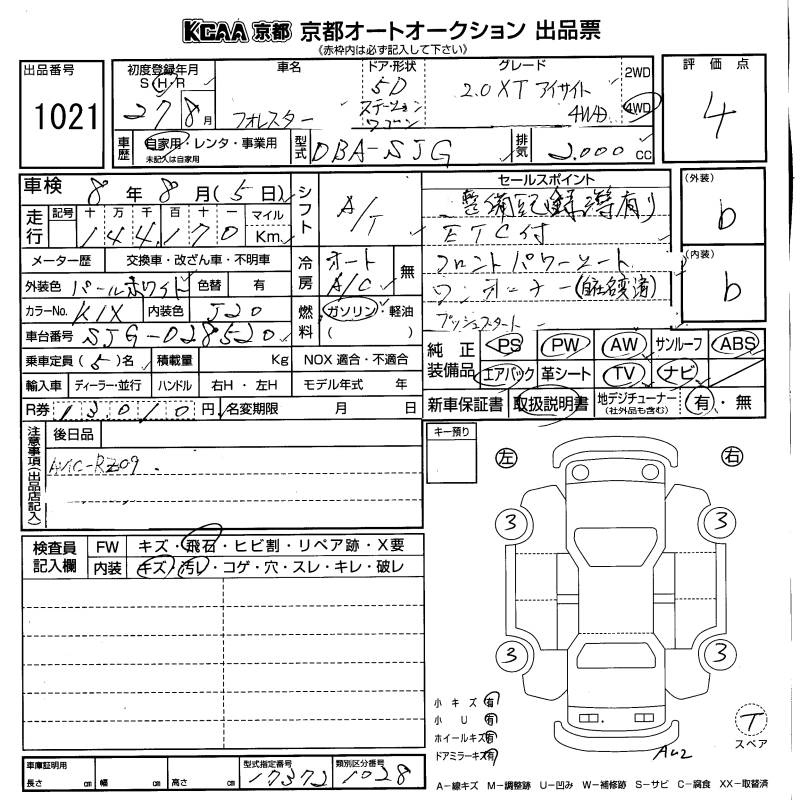 KCAA 京都 京都オートオークション 出品票
《赤枠内は必ず記入して下さい》
出品番号 1021
初度登録年月 S・H・R 27 8月
車名 フォレスター
ドア・形状 5D ステーションワゴン
グレード 2.0XT アイサイト 4WD
2WD 4WD
評価点 4
車歴 自家用・レンタ・事業用 未記入は自家用
型式 DBA-SJG
排気 2,000 cc
車検 8年 8月(5日)
シフト A/T
セールスポイント
整備記録簿有り
ETC付
フロントパワーシート
ワンオーナー(自社名変済)
プッシュスタート
(外装) b
(内装) b
走行 記号 十 万 千 百 十 一 マイル Km
144,170
メーター歴 交換車・改ざん車・不明車
冷房 オート A/C 無
外装色 パールホワイト 色替 有
カラーNo. K1X 内装色 J20
燃料 ガソリン・軽油 ( )
車台番号 SJG-028520
乗車定員 (5)名 積載量 Kg NOX 適合・不適合
輸入車 ディーラー・並行 ハンドル 右H・左H モデル年式 年
R券 13,010円 名変期限 月 日
純正装備品 PS PW AW サンルーフ ABS
エアバック 革シート TV ナビ
新車保証書 取扱説明書 地デジチューナー(社外品も含む) 有・無
注意事項(出品店記入) 後日品
AVIC-RZ09
キー預り
左 右
3 3
3 3
検査員記入欄 FW キズ・飛石・ヒビ割・リペア跡・X要
内装 キズ・汚レ・コゲ・穴・スレ・キレ・破レ
小キズ 有
小U 有
ホイールキズ 有
ドアミラーキズ 有
AU2
T
スペア
車庫証明用 長さ cm 幅 cm 高さ cm
型式指定番号 17372
類別区分番号 1028
A-線キズ M-調整跡 U-凹み W-補修跡 S-サビ C-腐食 XX-取替済